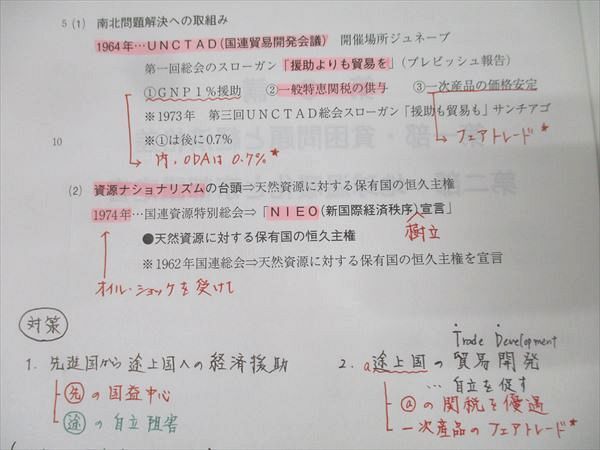 5 (1) 南北問題解決への取組み
1964年…UNCTAD(国連貿易開発会議) 開催場所ジュネーブ
第一回総会のスローガン「援助よりも貿易を」(プレビッシュ報告)
①GNP1%援助 ②一般特恵関税の供与 ③一次産品の価格安定
※1973年 第三回UNCTAD総会スローガン「援助も貿易も」サンチアゴ
フェアトレード★
10 ※①は後に0.7%
内、ODAは0.7%★
(2) 資源ナショナリズムの台頭⇒天然資源に対する保有国の恒久主権
1974年…国連資源特別総会⇒「NIEO(新国際経済秩序)宣言」
樹立
●天然資源に対する保有国の恒久主権
※1962年国連総会⇒天然資源に対する保有国の恒久主権を宣言
オイル・ショックを受けて
対策
Trade Development
1. 先進国から途上国への経済援助
先の国益中心
途の自立阻害
2. a途上国の貿易開発
…自立を促す
aの関税を優遇
一次産品のフェアトレード★